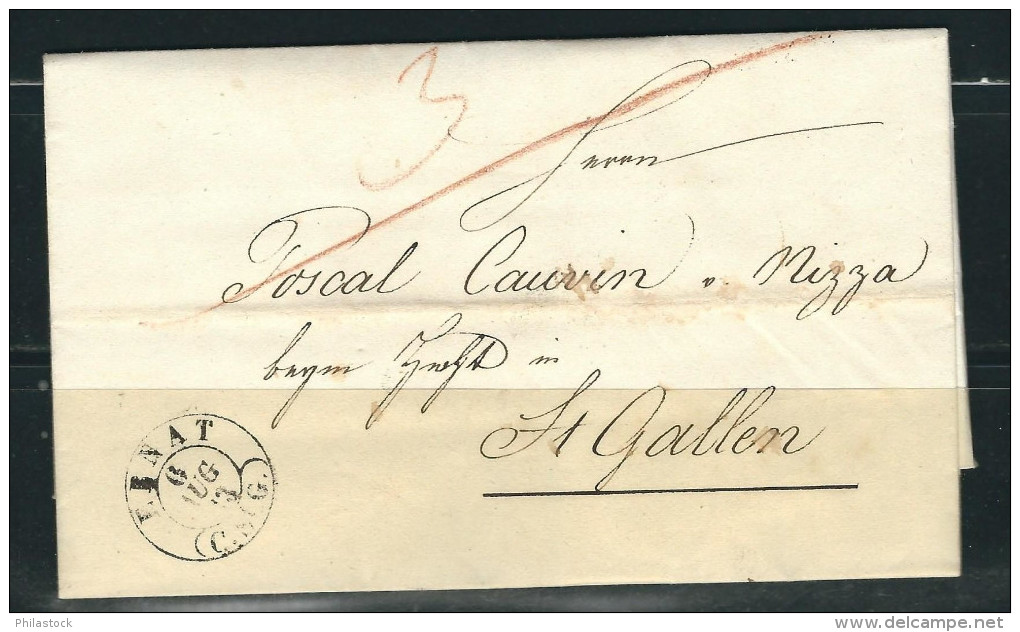 3
Herrn
Poscal Cauvin v. Nizza
beym Hecht in
St Gallen
LINAT
6
AUG
C. SG.
Philastock
www.delcampe.net